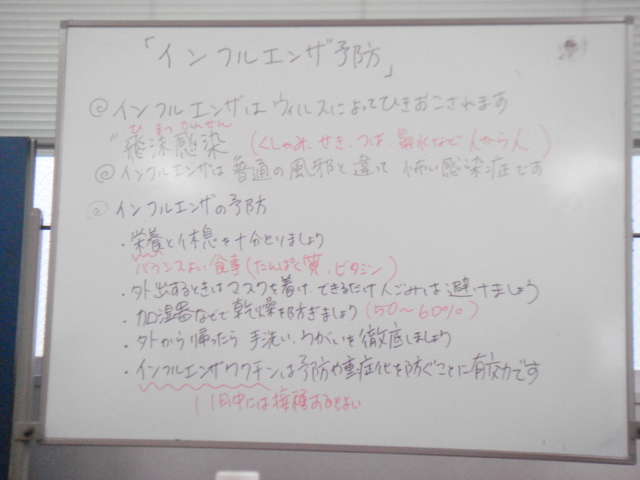 「インフルエンザ予防」
◎インフルエンザはウィルスによってひきおこされます
ひまつかんせん
"飛沫感染 (くしゃみ、せき、つば、鼻水など人から人)
◎インフルエンザは普通の風邪と違って怖い感染症です
◎インフルエンザの予防
・栄養と休息を十分とりましょう
バランスよい食事(たんぱく質、ビタミン)
・外出するときはマスクを着け、できるだけ人ごみは避けましょう
・加湿器などで乾燥を防ぎましょう(50〜60%)
・外から帰ったら手洗い、うがいを徹底しましょう
・インフルエンザワクチンは予防や重症化を防ぐことに有効です
11月中には接種するとよい